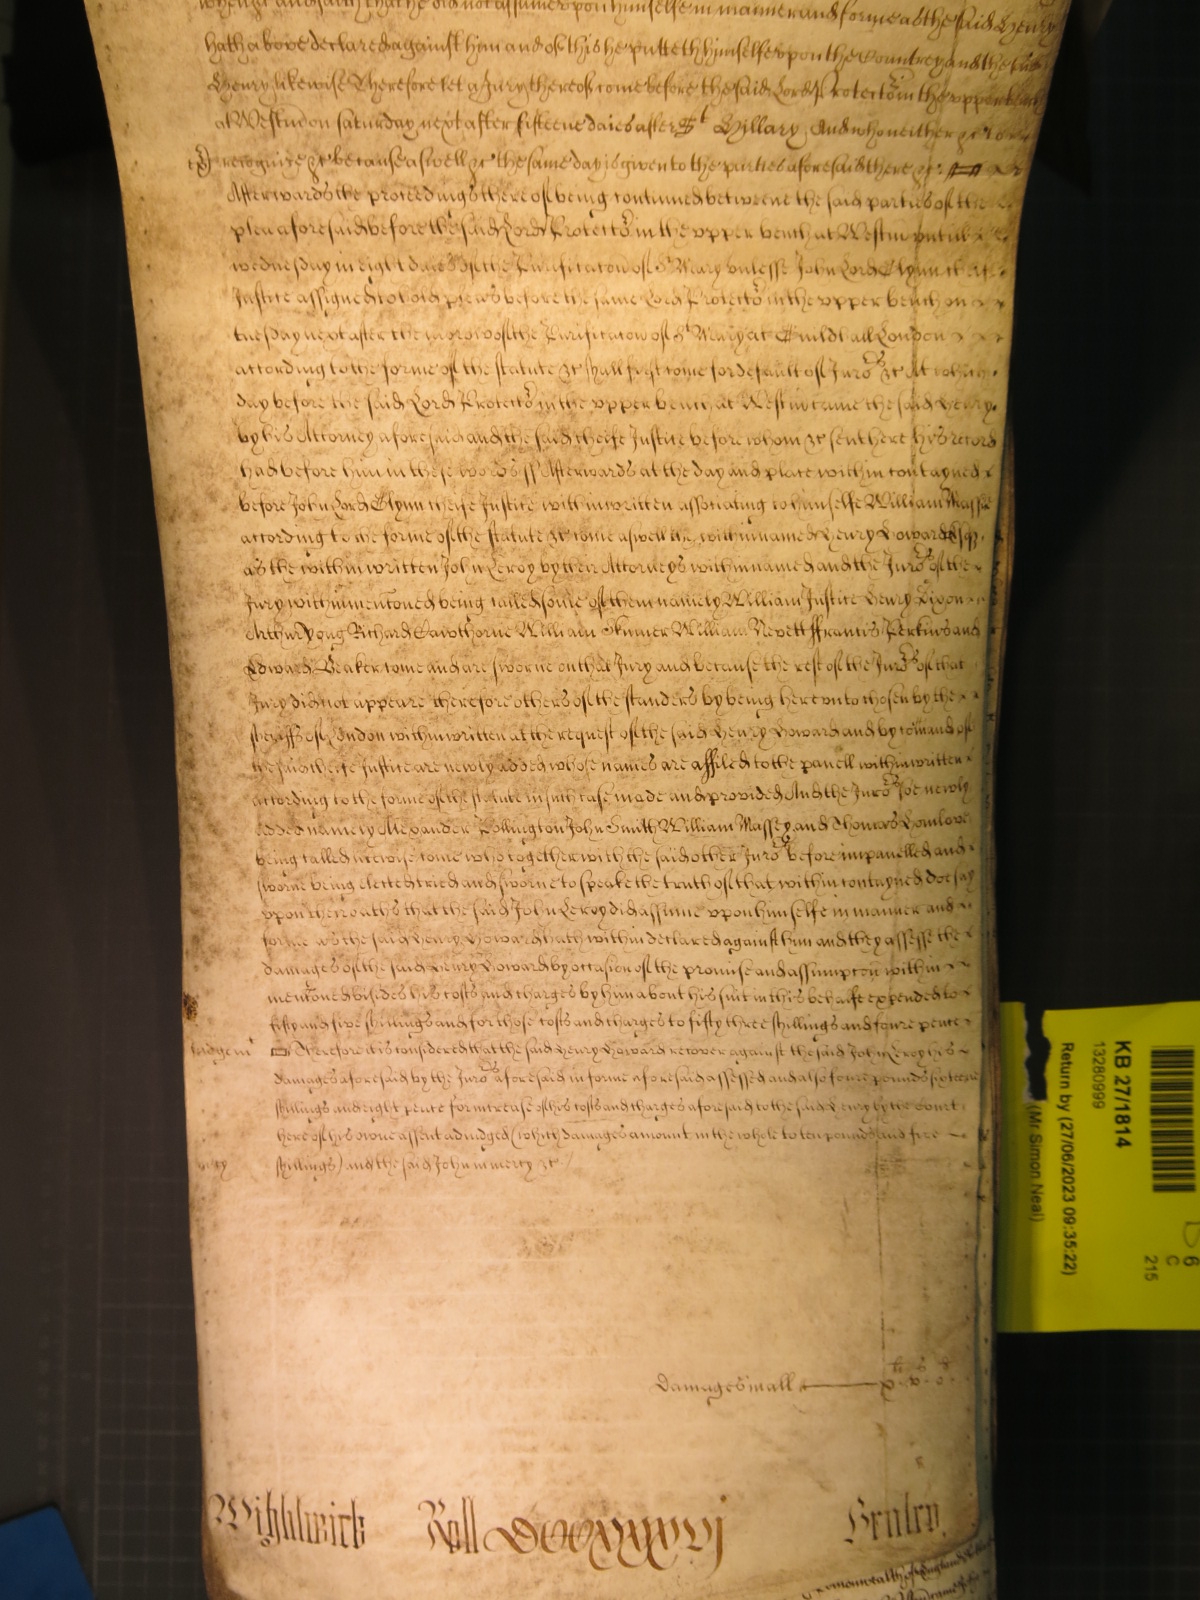 when &c And saith that he did not assume upon himselfe in manner and forme as the said Henry
hath above declared against him and of this he putteth himselfe upon the Countrey and the said
Henry likewise Therefore let a Jury thereof come before the said Lord Protector in the upper bench
at Westm on saturday next after fifteene daies after St Hillary And who neither &c to
recognize &c because aswell &c the same day is given to the parties aforesaid there &c
Afterwards the proceedings thereof being continued betweene the said parties of the
plea aforesaid before the said Lord Protector in the upper bench at Westm untill
wednesday in eight daies of the Purificaton of St Mary unlesse John Lord Glynn cheife
Justice assigned to hold pleas before the same Lord Protector in the upper bench on
tuesday next after the morow of the Purificaton of St Mary at Guildhall London
according to the forme of the statute &c shall first come for default of Juro&rs &c At which
day before the said Lord Protector in the upper bench at Westm came the said Henry
by his Attorney aforesaid and the said cheife Justice before whom &c sent here his record
had before him in these words ss Afterwards at the day and place within contayned
before John Lord Glynn cheife Justice within written associating to himselfe William Massie
according to the forme of the statute &c come aswell the within named Henry Howard Esqr
as the within written John Leroy by their Attorneys within named and the Jurors of the
Jury within mentoned being called some of them namely William Justice Henry Dixon
Arthur Pong Richard Cawthorne William Skinner William Nevett ffrancis Perkins and
Edward Beaker come and are sworne on that Jury and because the rest of the Jurors of that
Jury did not appeare therefore others of the standers by being hereunto chosen by the
sheriffs of London within written at the request of the said Henry Howard and by comand of
the said cheife Justice are newly added whose names are affiled to the panell within written
according to the forme of the statute in such case made and provided And the Jurors soe newly
added namely Alexander Pollington John Smith William Massey and Thomas Homlove
being called likewise come who together with the said other Jurors before impanelled and
sworne being elected tried and sworne to speake the truth of that within contayned doe say
uppon their oaths that the said John Leroy did assume upon himselfe in manner and
forme as the said Henry Howard hath within declared against him and they assesse the
damages of the said Henry Howard by occasion of the promise and assumpcon within
mentoned besides his costs and charges by him about his suit in this behalfe expended to
fifty and five shillings and for those costs and charges to fifty three shillings and foure pence
Judgem Therefore it is considered that the said Henry Howard recover against the said John Leroy his
damages aforesaid by the Jurors aforesaid in forme aforesaid assessed and also foure pounds sixteene
shillings and eight pence for increase of his costs and charges aforesaid to the said Henry by the Court
here of his owne assent adiudged (which damages amount in the whole to ten pounds and five
mercy shillings) and the said John in mercy &c
Damages in all li s d
x v 0
Wightwick Roll DCCCXXXXVJ Henley
KB 27/1814
13280999
Return by (27/06/2023 09:35:22)
(Mr Simon Neal)
D 6
C
215